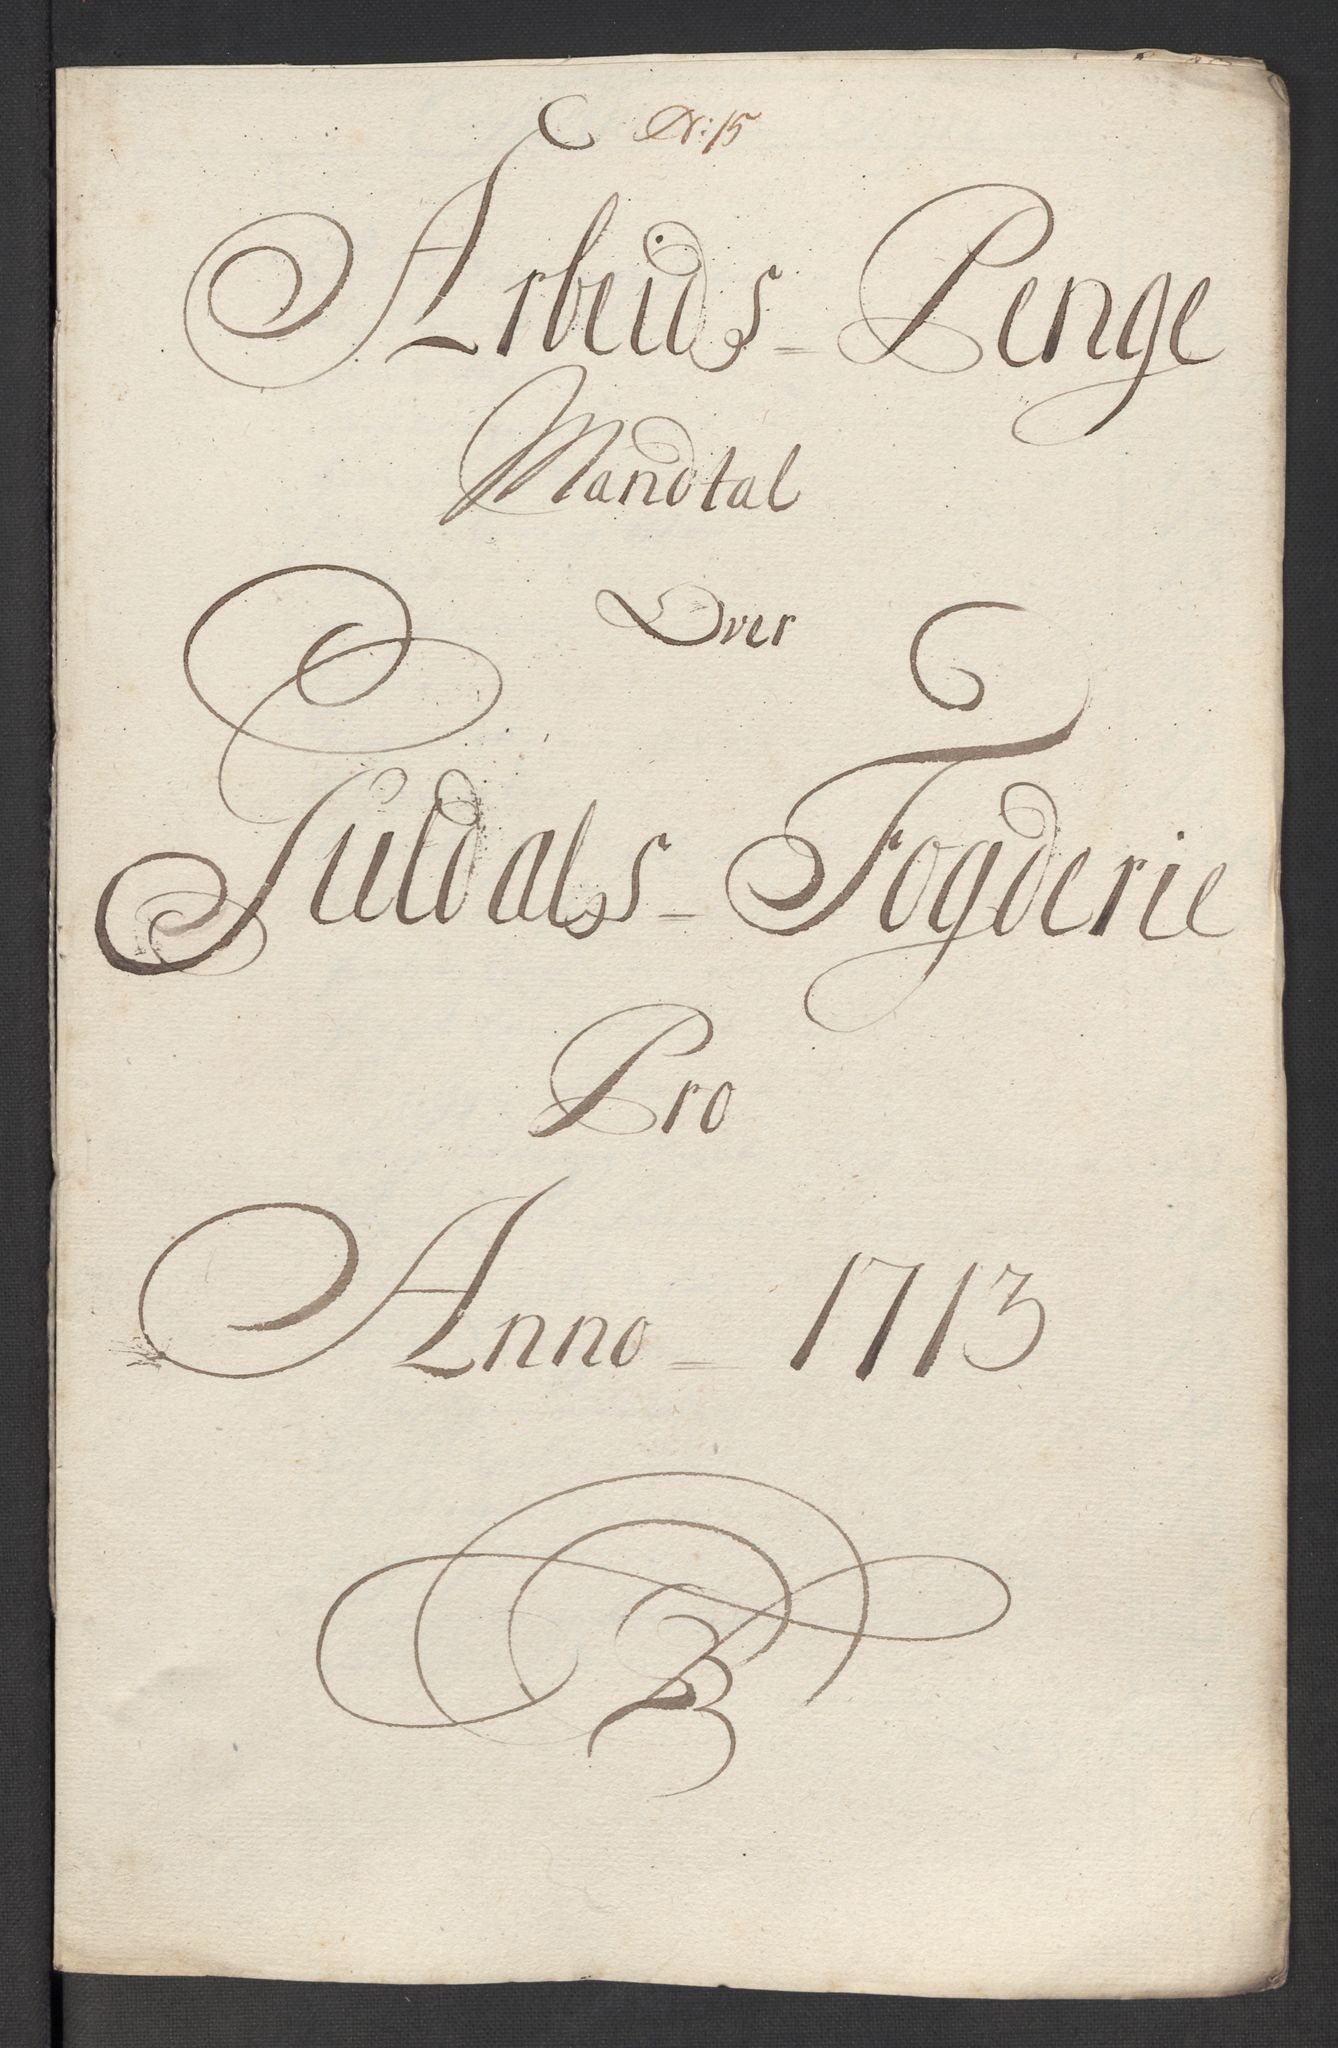 N: 15
Arbeids- Penge
Mandtal
Over
Guldals- Fogderie
Pro
Anno- 1713